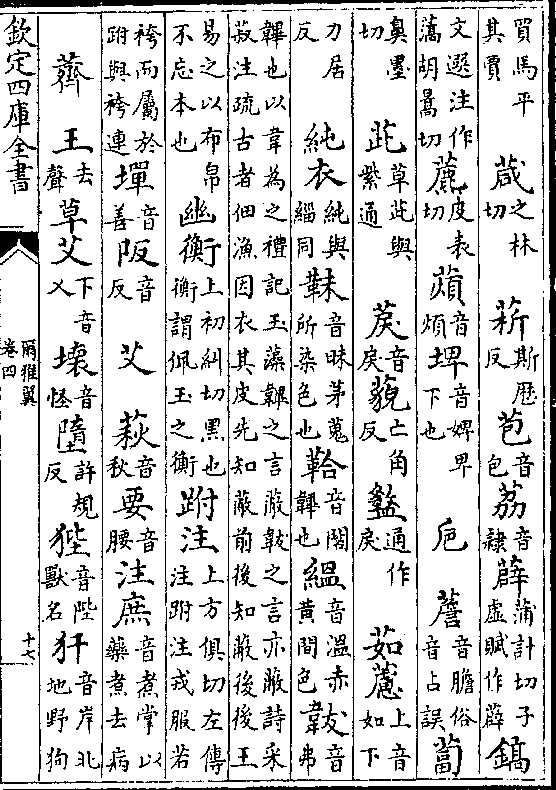 買馬平其賈 葴之林切 菥斯歷反 苞音包 荔音隸 薜蒲計切子虛賦作薜 鎬
文選注作藁胡暠切 藨皮表切 薠音煩 埤音婢界下也 卮 薝音膽俗音占誤 蔔
鼻墨切 茈草茈與紫通 音戾 藐亡角反 盭通作戾 茹藘上音如下
力居反 純衣純與緇同 韎音昧茅蒐所染色也 韐音閤韠也 縕音溫赤黃間色 韍音弗
韠也以韋為之禮記玉藻韠之言蔽韍之言亦蔽詩采菽注疏古者佃漁因衣其皮先知蔽前後知蔽後後王
易之以布帛不忘本也 幽衡上初糾切黑也衡謂佩玉之衡 跗注上方俱切左傳注跗注戎服若
袴而屬於跗與袴連 墠音善 阪音反 艾 萩音秋 要音腰 注 庶音煮掌以藥煮去病
薺 王去聲 草艾下音乂 壞音怪 墮許規反 狴音陛獸名 犴音岸北地野狗
欽定四庫全書
爾雅翼
卷四
十七